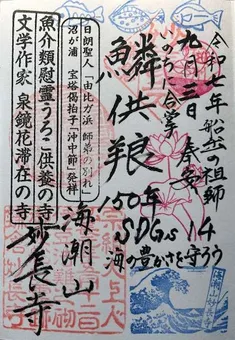 令和七年 船守の祖師
九月三日 奉拝
いのちに合掌
鱗供養
150年
SDGs 14
海の豊かさを守ろう
海潮山
妙長寺
日朗聖人「由比ガ浜 師弟の別れ」
沼が浦 宝塔偈拍子「沖中節」発祥
魚介類慰霊うろこ供養の寺
文学作家 泉鏡花滞在の寺